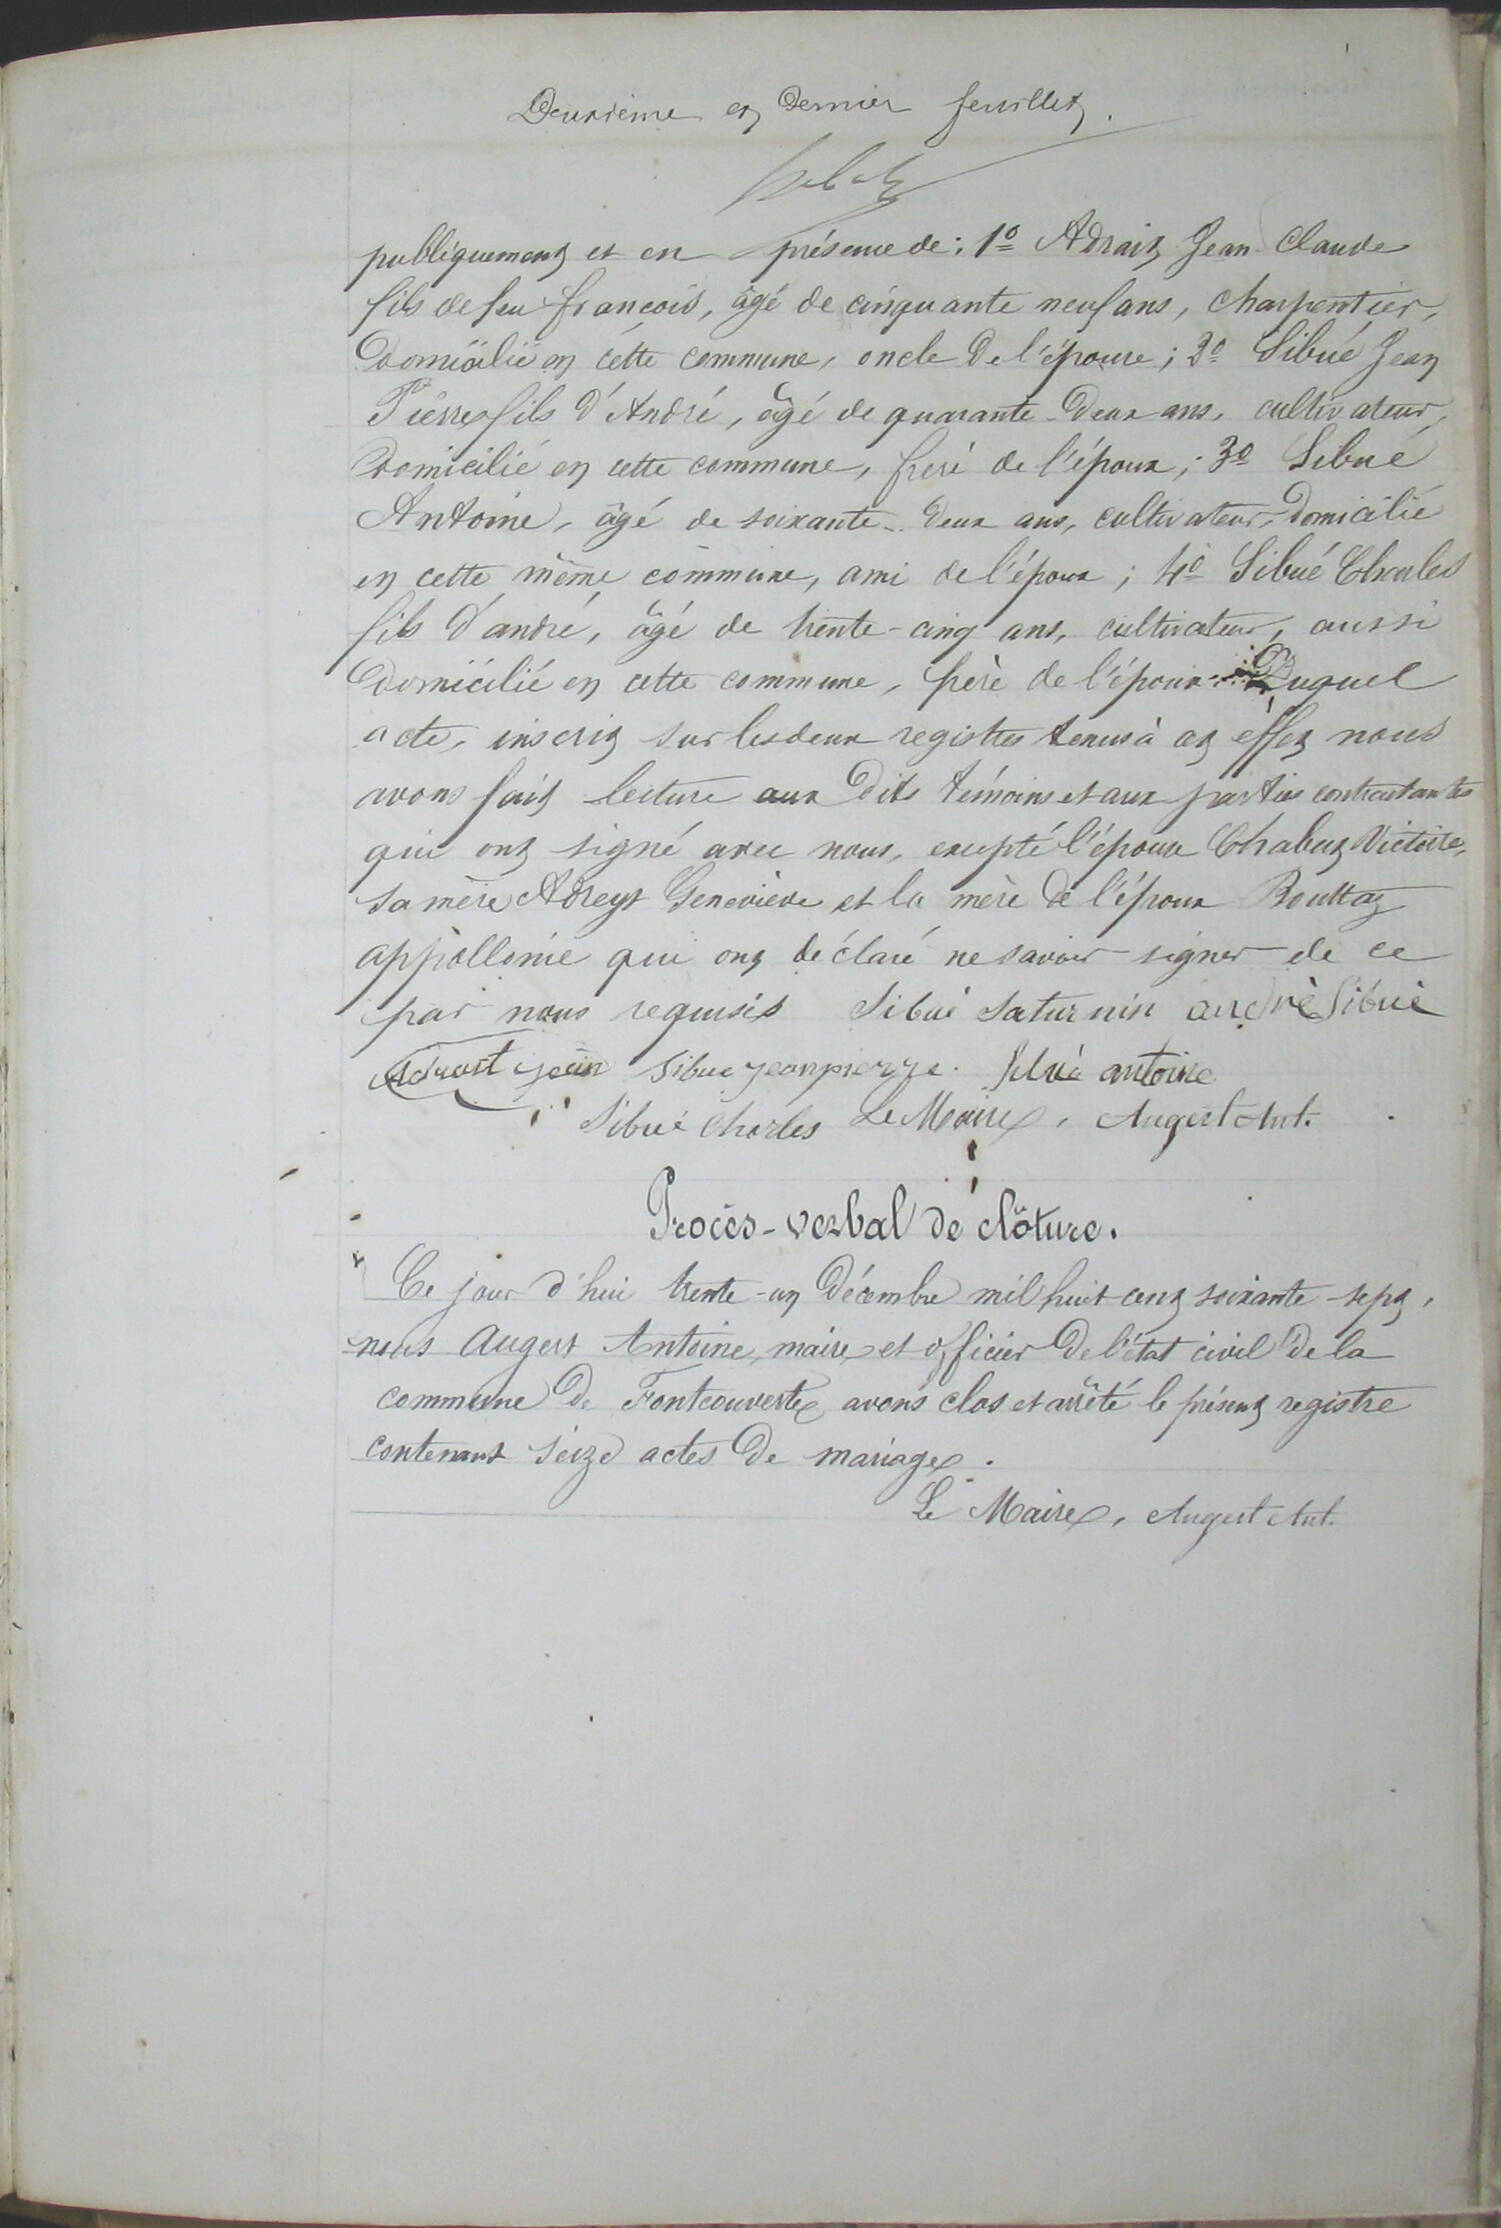 Deuxième et Dernier feuillet.
publiquement et en présence de : 1º Adrait Jean Claude
fils de feu françois, âgé de cinquante neuf ans, charpentier,
Domicilié en cette commune, oncle De l'épouse ; 2º Sibué Jean
Pierre fils d'André, âgé de quarante-Deux ans, cultivateur,
Domicilié en cette commune, frère de l'époux ; 3º Sibué
Antoine, âgé de soixante-Deux ans, cultivateur, Domicilié
en cette même commune, ami de l'époux ; 4º Sibué Charles
fils d'andré, âgé de trente-cinq ans, cultivateur, aussi
Domicilié en cette commune, frère de l'époux Duquel
acte, inscrit sur les deux registres tenus à cet effet nous
avons fait lecture aux Dits témoins et aux parties contractantes
qui ont signé avec nous, excepté l'épouse Chabuz Victoire,
sa mère Adreyt Geneviève et la mère De l'époux Bouttaz
appollonie qui ont déclaré ne savoir signer de ce
par nous requises Sibué Saturnin andrè Sibuè
Adrait jean Sibue jeanpierre. Sibuè antoine
Sibué Charles Le Maire, Augert Ant.
Procès-verbal de clôture.
Ce jour d'hui trente-un Décembre mil huit cent soixante-sept,
nous Augert Antoine, maire et officier De l'état civil De la
commune De Fontcouverte avons clos et arrêté le présent registre
contenant seize actes De mariage.
Le Maire, Augert Ant.